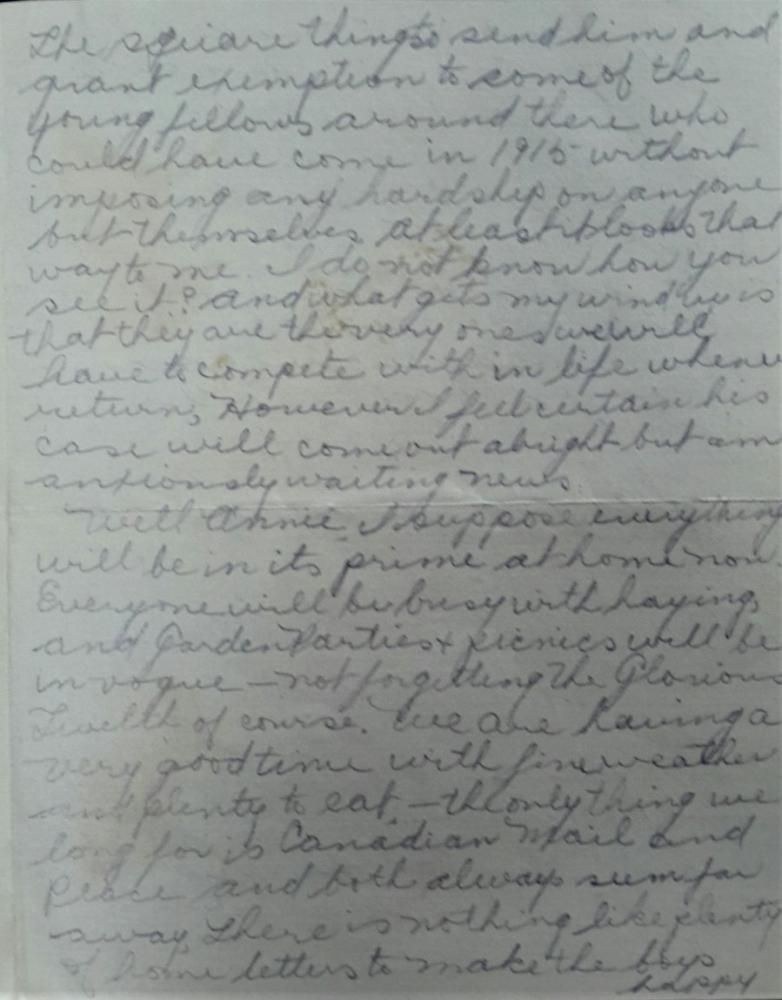 the square thing to send him and
grant exemption to some of the
young fellows around there who
could have come in 1915 without
imposing any hardship on anyone
but themselves. At least it looks that
way to me. I do not know how you
see it? And what gets my wind up is
that they are the very ones we will
have to compete with in life when we
return, However I feel certain his
case will come out alright but am
anxiously waiting news.
Well Annie, I suppose everything
will be in its prime at home now.
Everyone will be busy with haying,
and Garden Parties & picnics will be
in vogue – not forgetting the Glorious
Twelth of course. We are having a
very good time with fine weather
and plenty to eat – the only thing we
long for is Canadian Mail and
Peace and both always seem far
away. There is nothing like plenty
of home letters to make the boys
happy